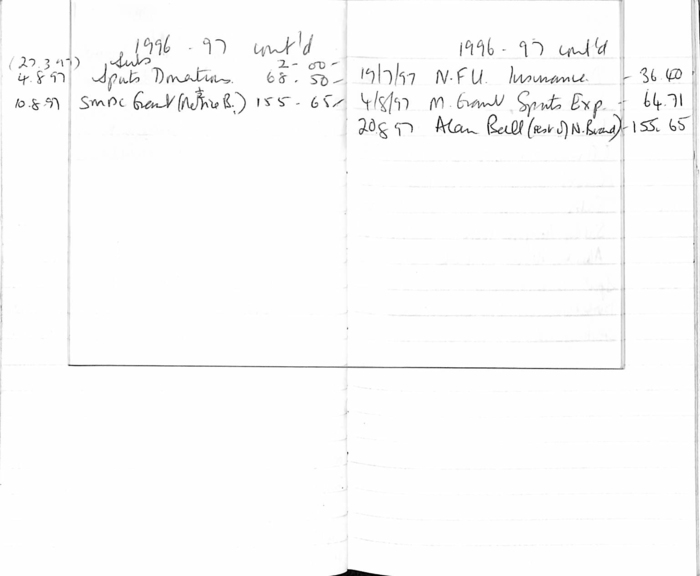 1996 - 97 cont'd
(27.3.97) Subs 2 - 00 -
4.8.97 Sports Donations. 68 - 50 -
10.8.97 SMDC Grant (Notice B.) 155 - 65 -
1996 - 97 cont'd
19/7/97 N.F.U. Insurance - 36.40
4/8/97 M. Grant Sports Exp. - 64.71
20 8 97 Alan Ball (rest of N. Board) - 155.65